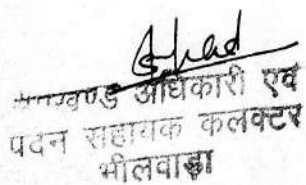 अधिकारी एवं
पदेन सहायक कलक्टर
भीलवाड़ा